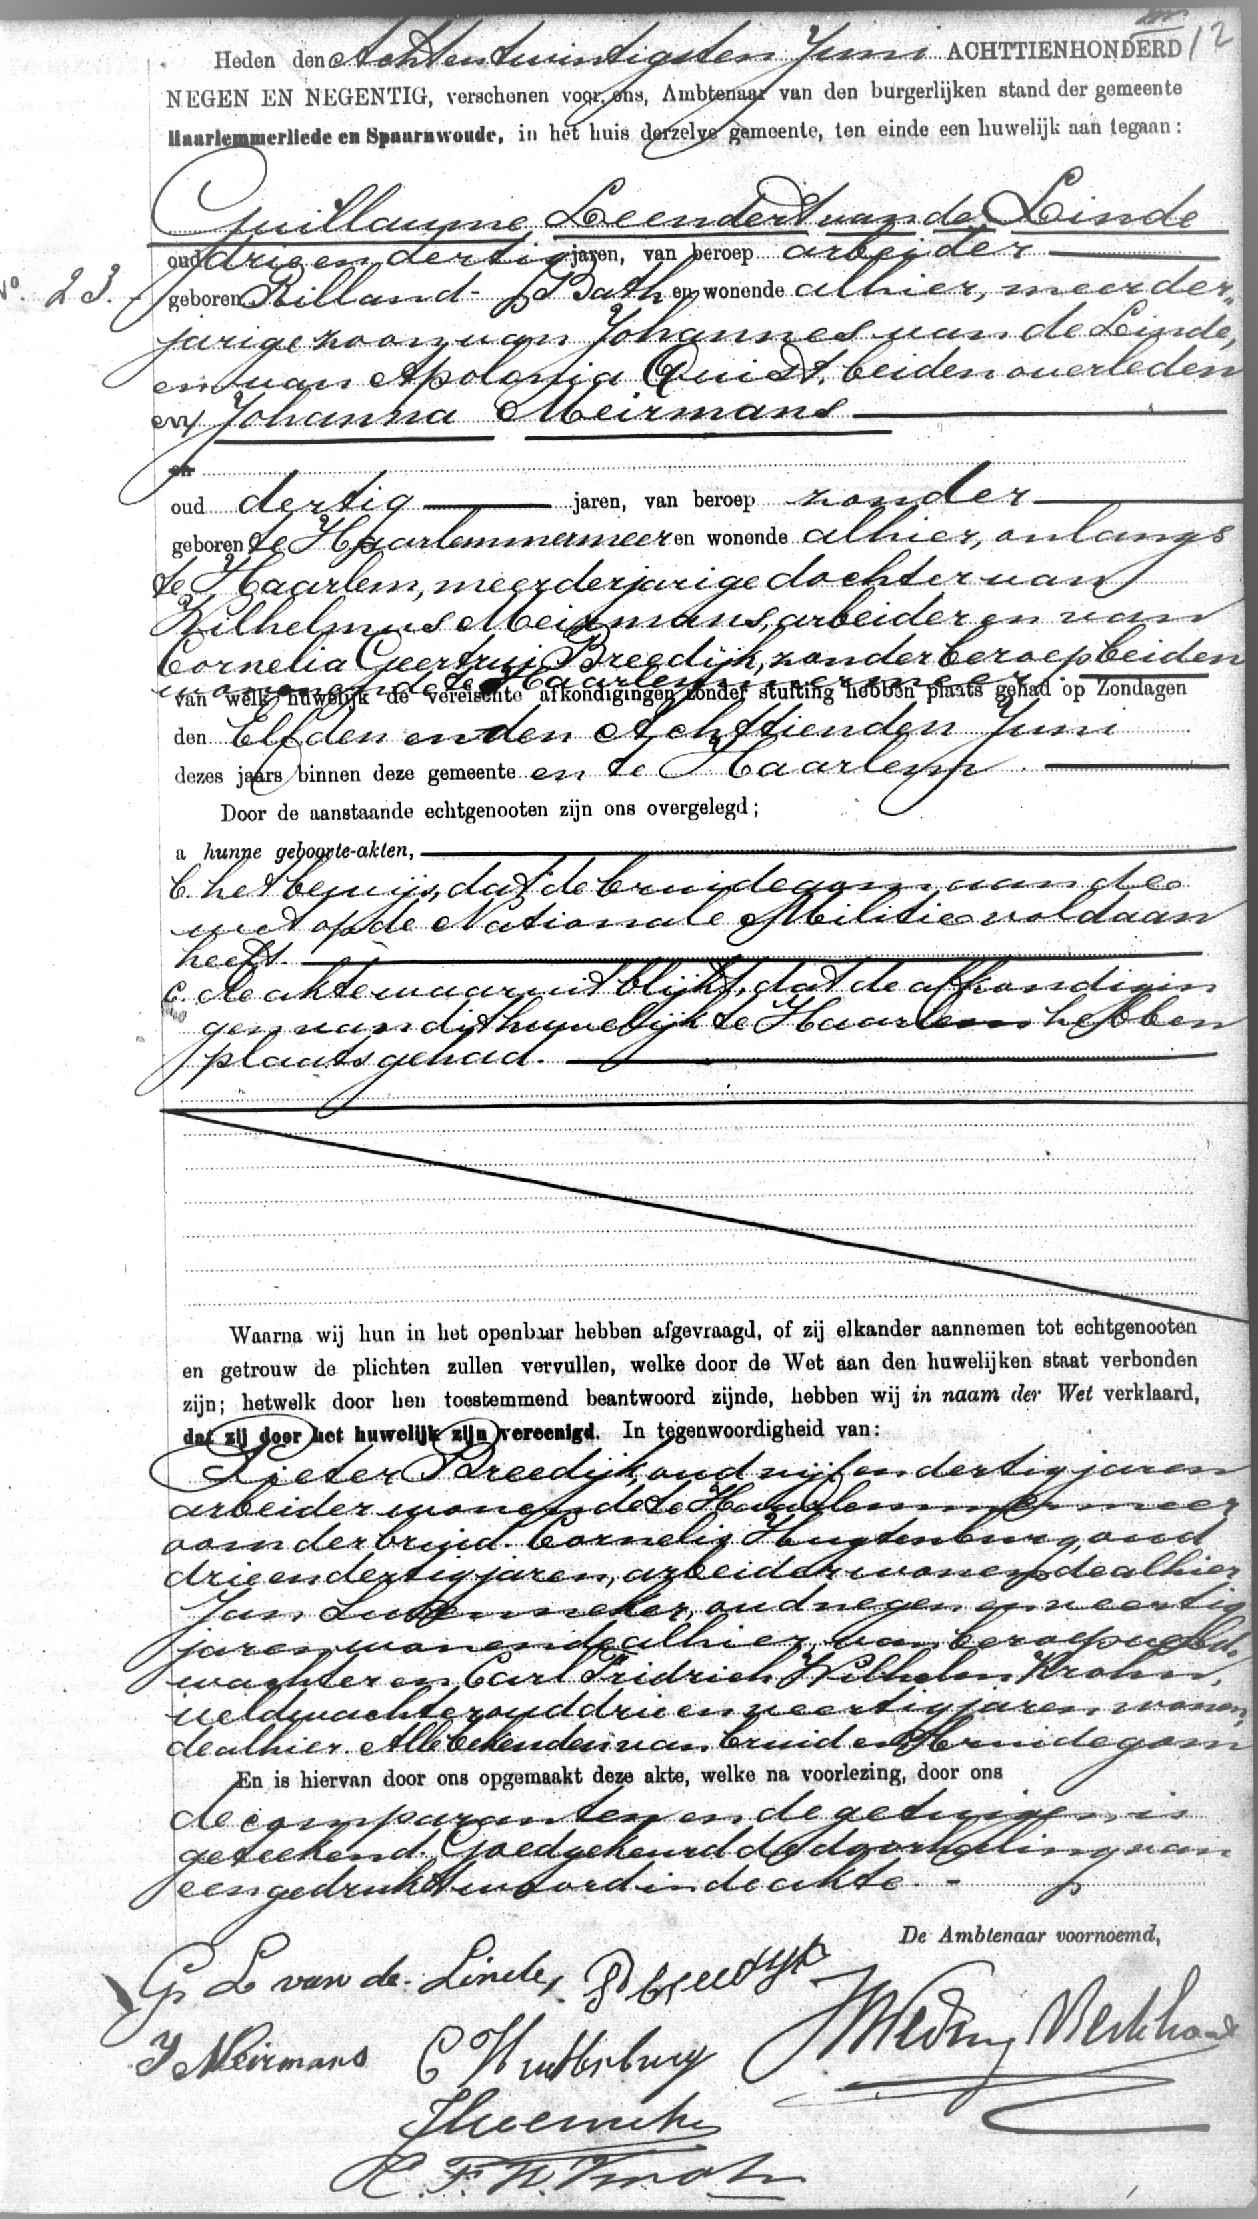 12
Heden den Achtentwintigsten Juni ACHTTIENHONDERD
NEGEN EN NEGENTIG, verschenen voor ons, Ambtenaar van den burgerlijken stand der gemeente
Haarlemmerliede en Spaarnwoude, in het huis derzelve gemeente, ten einde een huwelijk aan tegaan:
Guillaume Leendert van de Linde
oud drieendertig jaren, van beroep arbeider
No. 23.
geboren Rilland-Bath en wonende alhier, meerder-
jarige zoon van Johannes van de Linde,
en van Apolonia Quist, beiden overleden
en Johanna Meirmans
en
oud dertig jaren, van beroep zonder
geboren te Haarlemmermeer en wonende alhier, onlangs
te Haarlem, meerderjarige dochter van
Wilhelmus Meirmans, arbeider en van
Cornelia Geertrui Breedijk, zonder beroep beiden
wonende te Haarlemmermeer
van welk huwelijk de vereischte afkondigingen zonder stuiting hebben plaats gehad op Zondagen
den Elfden en den Achttienden Juni
dezes jaars binnen deze gemeente en te Haarlem
Door de aanstaande echtgenooten zijn ons overgelegd;
a hunne geboorte-akten,
b. het bewijs, dat de bruidegom aan de
wet op de Nationale Militie voldaan
heeft.
c. de akte waaruit blijkt, dat de afkondigin
gen van dit huwelijk te Haarlem hebben
plaats gehad.
Waarna wij hun in het openbaar hebben afgevraagd, of zij elkander aannemen tot echtgenooten
en getrouw de plichten zullen vervullen, welke door de Wet aan den huwelijken staat verbonden
zijn; hetwelk door hen toestemmend beantwoord zijnde, hebben wij in naam der Wet verklaard,
dat zij door het huwelijk zijn vereenigd. In tegenwoordigheid van:
Pieter Breedijk, oud vijfendertig jaren
arbeider wonende te Haarlemmermeer
oom der bruid. Cornelis Hugtenburg, oud
drieendertig jaren, arbeider wonende alhier
Jan oud negenenveertig
jaren wonende alhier, van beroep veld-
wachter en Carl Fridrich Wilhelm Krohn,
veldwachter oud drieenveertig jaren wonen,
de alhier. Alle bekenden van bruid en bruidegom
En is hiervan door ons opgemaakt deze akte, welke na voorlezing, door ons
de comparanten en de getuigen is
geteekend. Goedgekeurd de doorhaling van
een gedrukt woord in de akte. -
De Ambtenaar voornoemd,
G L van de Linde, P breedijk
J Meirmans C
C. F. W. Krohn